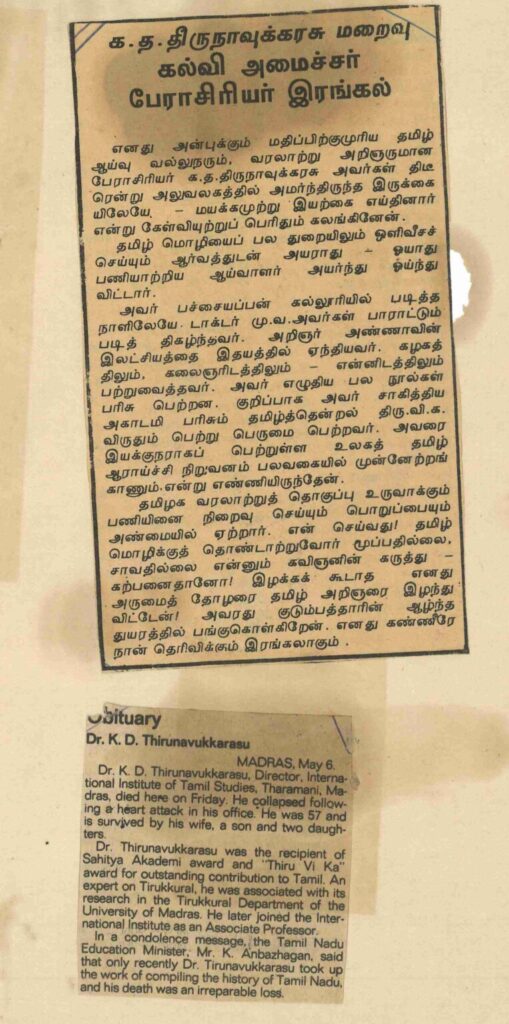 க.த.திருநாவுக்கரசு மறைவு
கல்வி அமைச்சர்
பேராசிரியர் இரங்கல்
எனது அன்புக்கும் மதிப்பிற்குமுரிய தமிழ்
ஆய்வு வல்லுநரும், வரலாற்று அறிஞருமான
பேராசிரியர் க.த.திருநாவுக்கரசு அவர்கள் திடீ
ரென்று அலுவலகத்தில் அமர்ந்திருந்த இருக்கை
யிலேயே – மயக்கமுற்று இயற்கை எய்தினார்
என்று கேள்வியுற்றுப் பெரிதும் கலங்கினேன்.
தமிழ் மொழியைப் பல துறையிலும் ஒளிவீசச்
செய்யும் ஆர்வத்துடன் அயராது – ஓயாது
பணியாற்றிய ஆய்வாளர் அயர்ந்து ஓய்ந்து
விட்டார்.
அவர் பச்சையப்பன் கல்லூரியில் படித்த
நாளிலேயே டாக்டர் மு.வ.அவர்கள் பாராட்டும்
படித் திகழ்ந்தவர். அறிஞர் அண்ணாவின்
இலட்சியத்தை இதயத்தில் ஏந்தியவர். கழகத்
திலும், கலைஞரிடத்திலும் – என்னிடத்திலும்
பற்றுவைத்தவர். அவர் எழுதிய பல நூல்கள்
பரிசு பெற்றன. குறிப்பாக அவர் சாகித்திய
அகாடமி பரிசும் தமிழ்த்தென்றல் திரு.வி.க.
விருதும் பெற்று பெருமை பெற்றவர். அவரை
இயக்குநராகப் பெற்றுள்ள உலகத் தமிழ்
ஆராய்ச்சி நிறுவனம் பலவகையில் முன்னேற்றங்
காணும்.என்று எண்ணியிருந்தேன்.
தமிழக வரலாற்றுத் தொகுப்பு உருவாக்கும்
பணியினை நிறைவு செய்யும் பொறுப்பையும்
அண்மையில் ஏற்றார். என் செய்வது! தமிழ்
மொழிக்குத் தொண்டாற்றுவோர் மூப்பதில்லை,
சாவதில்லை என்னும் கவிஞனின் கருத்து –
கற்பனைதானோ! இழக்கக் கூடாத எனது
அருமைத் தோழரை தமிழ் அறிஞரை இழந்து
விட்டேன்! அவரது குடும்பத்தாரின் ஆழ்ந்த
துயரத்தில் பங்குகொள்கிறேன். எனது கண்ணீரே
நான் தெரிவிக்கும் இரங்கலாகும் .
Obituary
Dr. K. D. Thirunavukkarasu
MADRAS, May 6.
Dr. K. D. Thirunavukkarasu, Director, Interna-
tional Institute of Tamil Studies, Tharamani, Ma-
dras, died here on Friday. He collapsed follow-
ing a heart attack in his office. He was 57 and
is survived by his wife, a son and two daugh-
ters.
Dr. Thirunavukkarasu was the recipient of
Sahitya Akademi award and "Thiru Vi Ka"
award for outstanding contribution to Tamil. An
expert on Tirukkural, he was associated with its
research in the Tirukkural Department of the
University of Madras. He later joined the Inter-
national Institute as an Associate Professor.
In a condolence message, the Tamil Nadu
Education Minister, Mr. K. Anbazhagan, said
that only recently Dr. Tirunavukkarasu took up
the work of compiling the history of Tamil Nadu,
and his death was an irreparable loss.